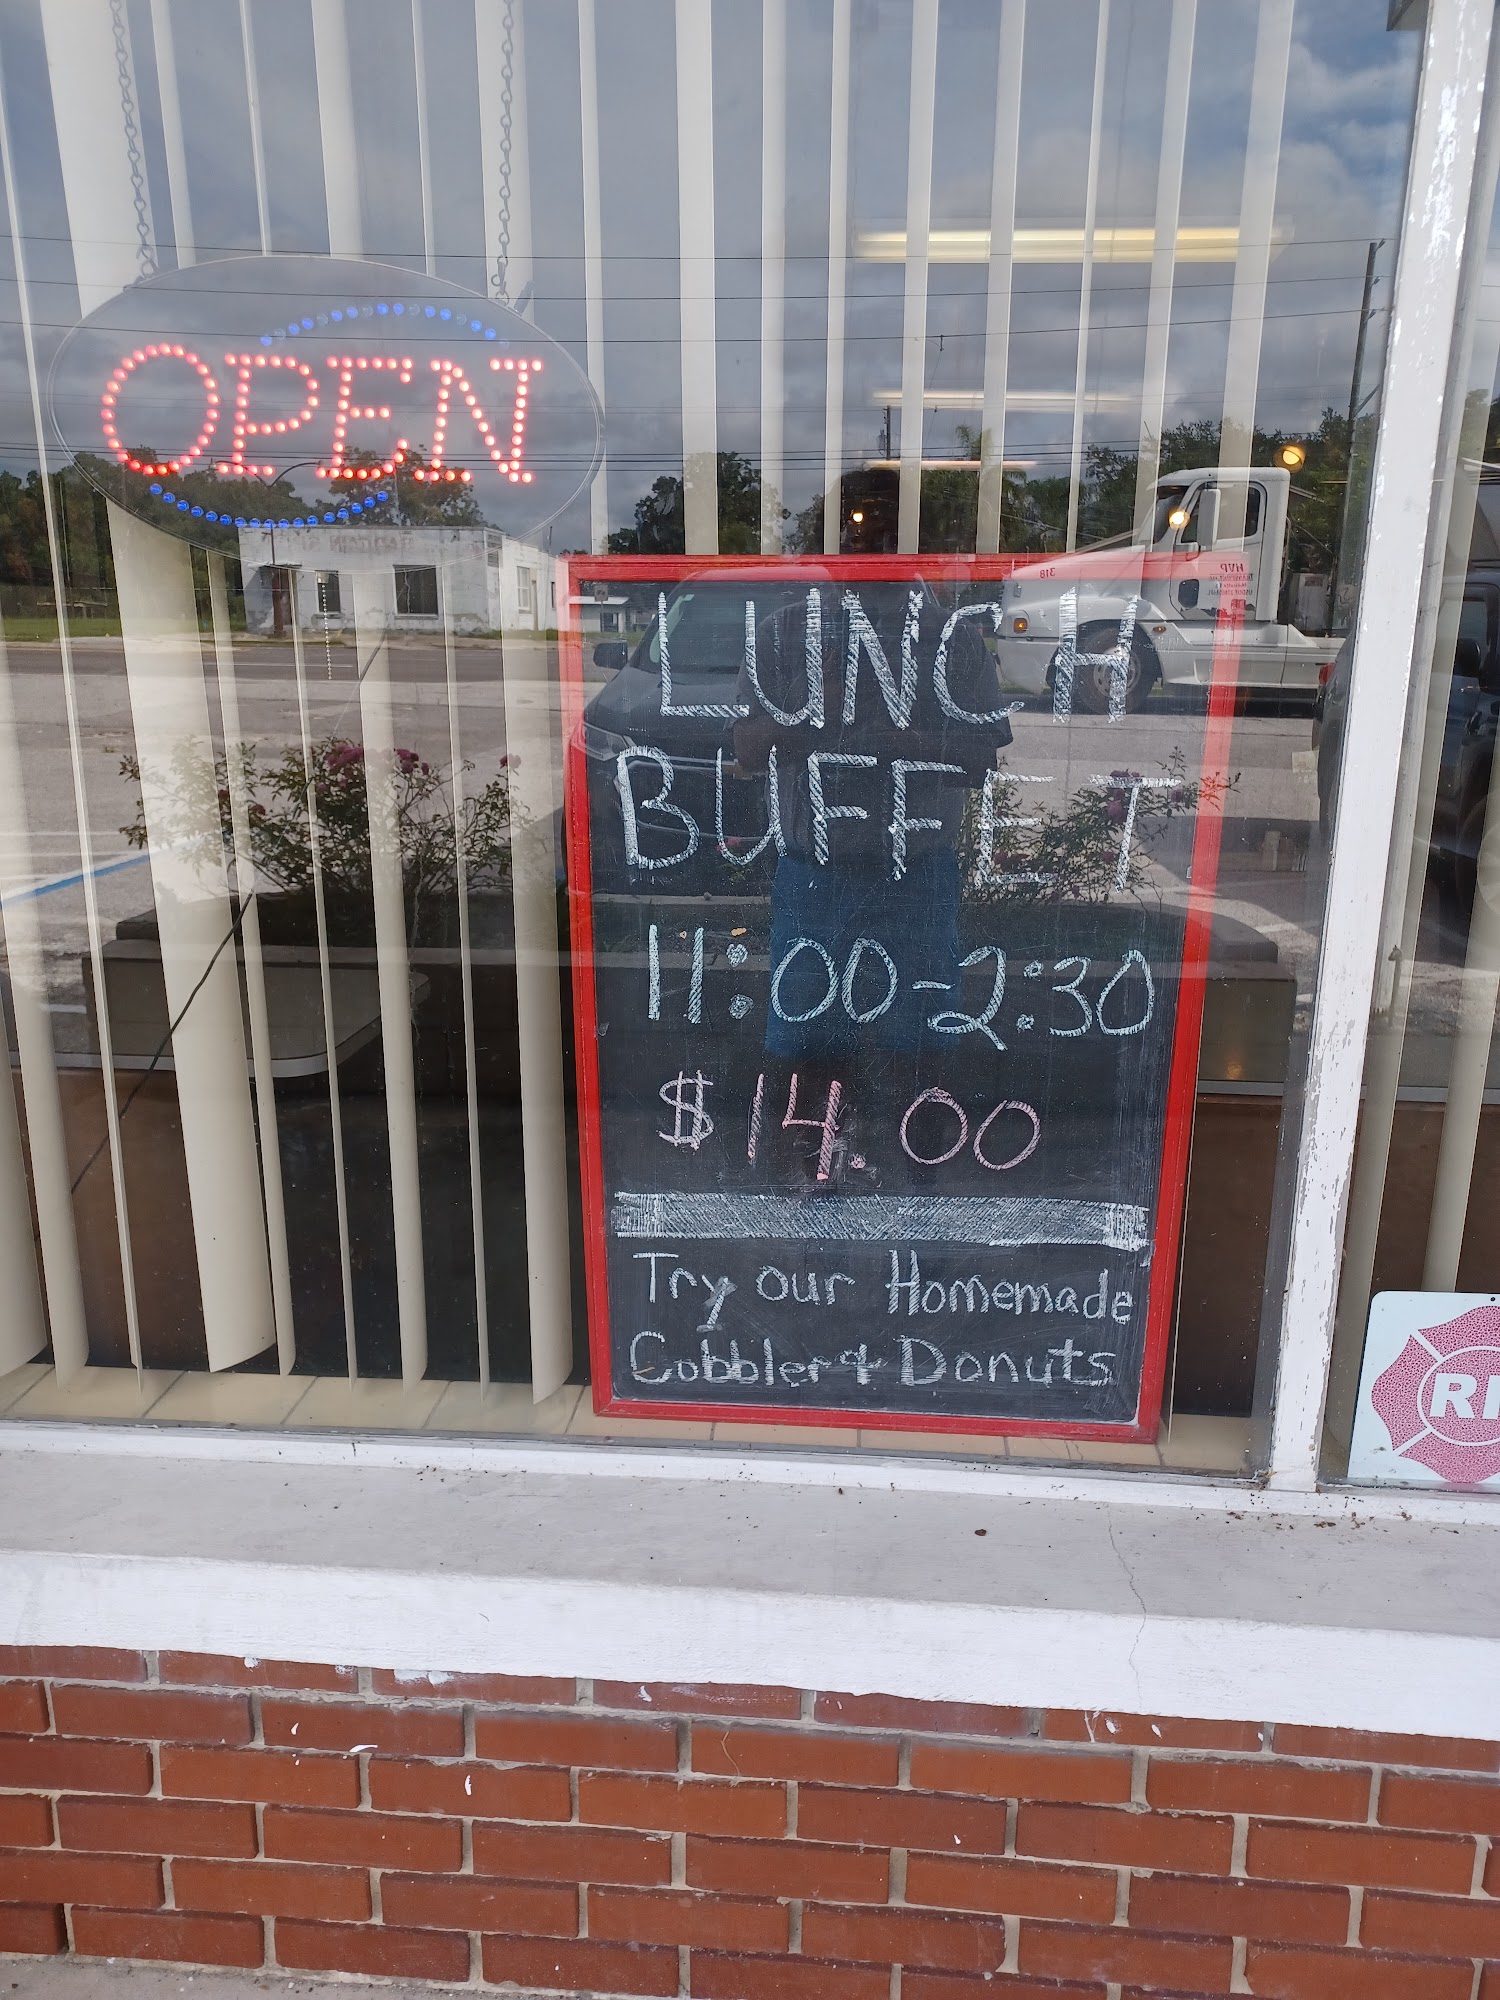 OPEN
LUNCH
BUFFET
11:00-2:30
$14.00
Try our Homemade
Cobbler & Donuts
HVP
318